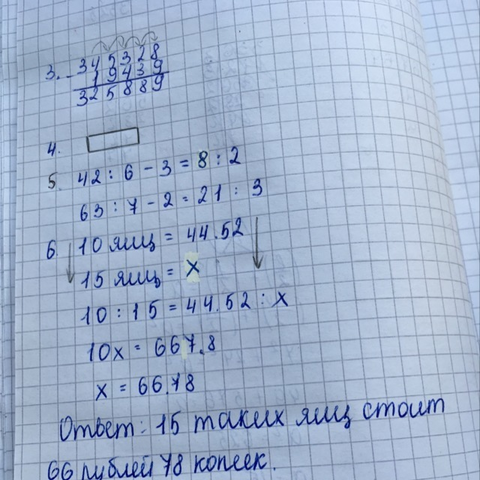 3. 345328
- 19439
325889
4.
5. 42 : 6 - 3 = 8 : 2
63 : 7 - 2 = 21 : 3
6. 10 яиц = 44.52
15 яиц = x
10 : 15 = 44.52 : x
10x = 667.8
x = 66.78
Ответ: 15 таких яиц стоит
66 рублей 78 копеек.